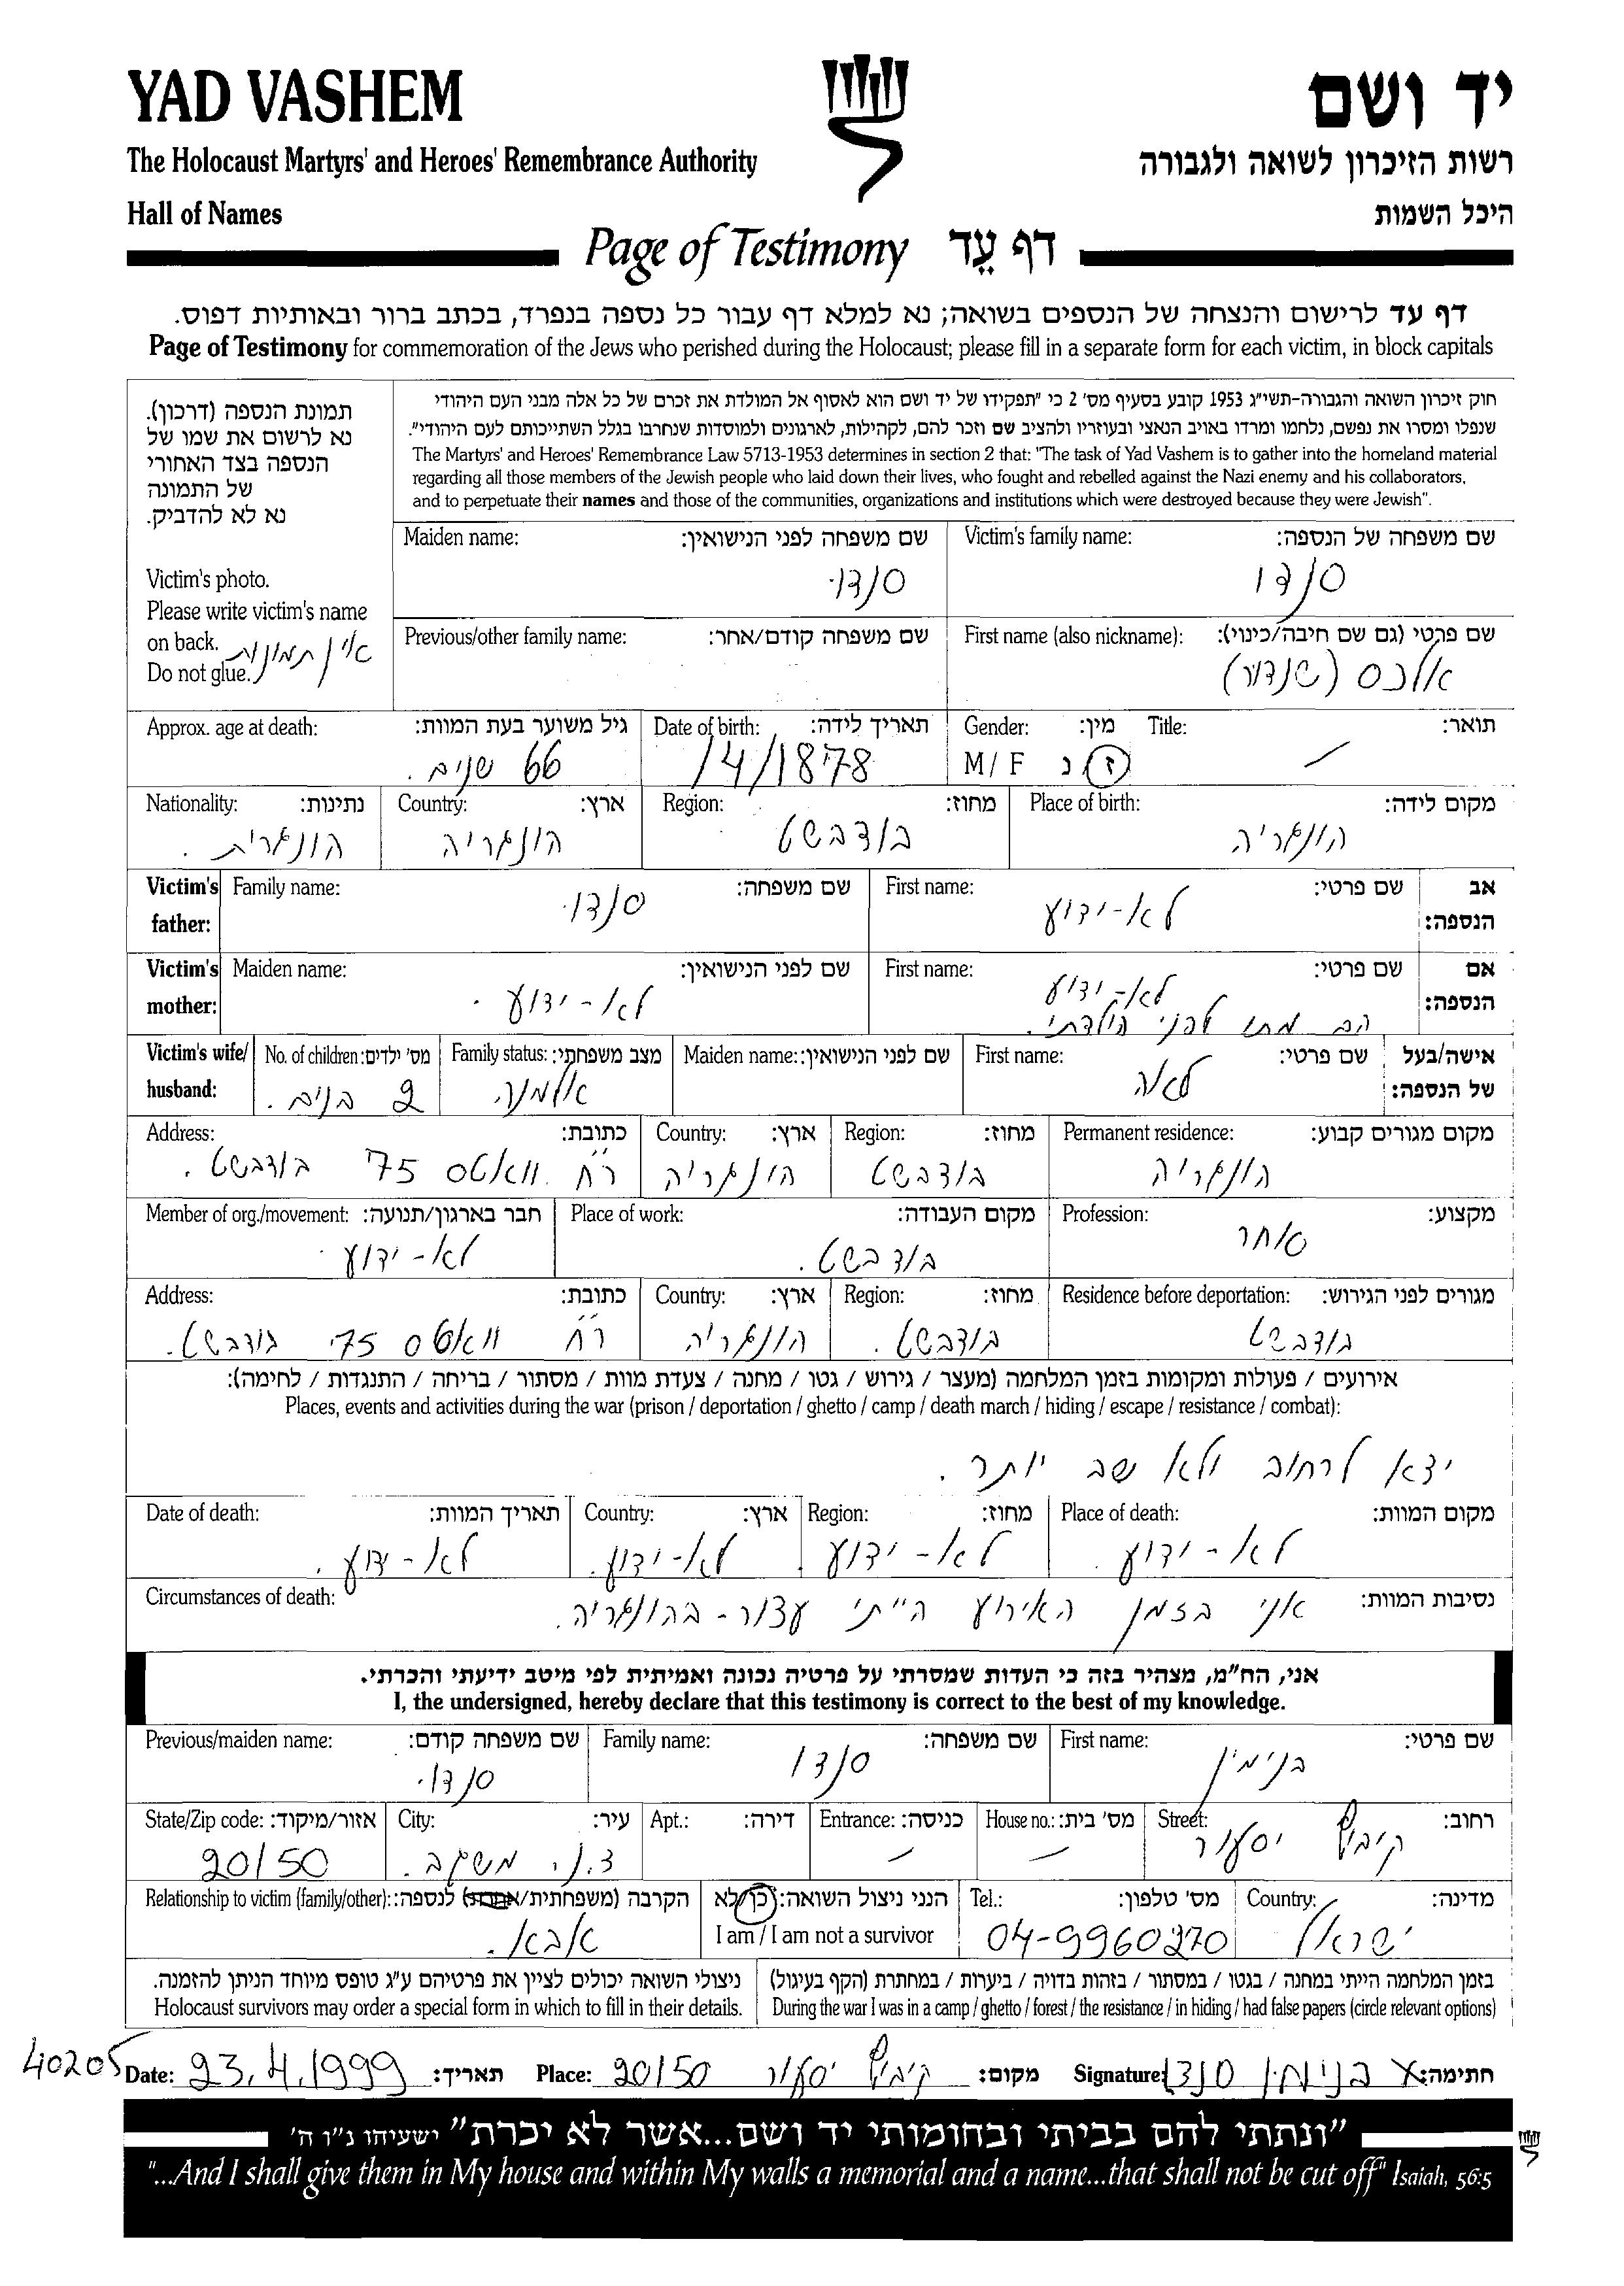 YAD VASHEM
יד ושם
The Holocaust Martyrs' and Heroes' Remembrance Authority
רשות הזיכרון לשואה ולגבורה
Hall of Names
היכל השמות
Page of Testimony דף עֵד
דף עד לרישום והנצחה של הנספים בשואה; נא למלא דף עבור כל נספה בנפרד, בכתב ברור ובאותיות דפוס.
Page of Testimony for commemoration of the Jews who perished during the Holocaust; please fill in a separate form for each victim, in block capitals
תמונת הנספה (דרכון).
נא לרשום את שמו של
הנספה בצד האחורי
של התמונה
נא לא להדביק.
Victim's photo.
Please write victim's name
on back.
Do not glue.
אין תמונות
חוק זיכרון השואה והגבורה-תשי"ג 1953 קובע בסעיף מס' 2 כי "תפקידו של יד ושם הוא לאסוף אל המולדת את זכרם של כל אלה מבני העם היהודי
שנפלו ומסרו את נפשם, נלחמו ומרדו באויב הנאצי ובעוזריו ולהציב שם וזכר להם, לקהילות, לארגונים ולמוסדות שנחרבו בגלל השתייכותם לעם היהודי".
The Martyrs' and Heroes' Remembrance Law 5713-1953 determines in section 2 that: "The task of Yad Vashem is to gather into the homeland material
regarding all those members of the Jewish people who laid down their lives, who fought and rebelled against the Nazi enemy and his collaborators,
and to perpetuate their names and those of the communities, organizations and institutions which were destroyed because they were Jewish".
Victim's family name: שם משפחה של הנספה:
סנדו
Maiden name: שם משפחה לפני הנישואין:
סנדו.
First name (also nickname): שם פרטי (גם שם חיבה/כינוי):
אלכס (שנדור)
Previous/other family name: שם משפחה קודם/אחר:
Title: תואר:
—
Gender: מין:
M/ F ז נ
Date of birth: תאריך לידה:
/4/1878
Approx. age at death: גיל משוער בעת המוות:
66 שנים.
Place of birth: מקום לידה:
הונגריה
Region: מחוז:
בודבשט
Country: ארץ:
הונגריה
Nationality: נתינות:
הונגרית.
Victim's father: אב הנספה:
First name: שם פרטי:
לא-ידוע
Family name: שם משפחה:
סנדו.
Victim's mother: אם הנספה:
First name: שם פרטי:
לא-ידוע
הם מתו לפני הולדתי.
Maiden name: שם לפני הנישואין:
לא-ידוע.
Victim's wife/ husband: אישה/בעל של הנספה:
First name: שם פרטי:
לאה
Maiden name: שם לפני הנישואין:
Family status: מצב משפחתי:
אלמנה
No. of children: מס' ילדים:
2 בנים.
Permanent residence: מקום מגורים קבוע:
הונגריה
Region: מחוז:
בודבשט
Country: ארץ:
הונגריה
Address: כתובת:
רח' וואטס 75 בודבשט.
Profession: מקצוע:
סוחר
Place of work: מקום העבודה:
בודבשט.
Member of org./movement: חבר בארגון/תנועה:
לא-ידוע.
Residence before deportation: מגורים לפני הגירוש:
בודבשט
Region: מחוז:
בודבשט.
Country: ארץ:
הונגריה
Address: כתובת:
רח' וואטס 75 בודבשט.
אירועים / פעולות ומקומות בזמן המלחמה (מעצר / גירוש / גטו / מחנה / צעדת מוות / מסתור / בריחה / התנגדות / לחימה):
Places, events and activities during the war (prison / deportation / ghetto / camp / death march / hiding / escape / resistance / combat):
יצא לרחוב ולא שב יותר.
Place of death: מקום המוות:
לא-ידוע.
Region: מחוז:
לא-ידוע.
Country: ארץ:
לא-ידוע.
Date of death: תאריך המוות:
לא-ידוע.
Circumstances of death: נסיבות המוות:
אני בזמן האירוע הייתי עצור-בהונגריה.
אני, הח"מ, מצהיר בזה כי העדות שמסרתי על פרטיה נכונה ואמיתית לפי מיטב ידיעתי והכרתי.
I, the undersigned, hereby declare that this testimony is correct to the best of my knowledge.
First name: שם פרטי:
בנימין
Family name: שם משפחה:
סנדו
Previous/maiden name: שם משפחה קודם:
סנדו.
Street: רחוב:
קיבוץ יסעור
House no.: מס' בית:
—
Entrance: כניסה:
—
Apt.: דירה:
City: עיר:
ד.נ. משגב.
State/Zip code: אזור/מיקוד:
20150
Country: מדינה:
ישראל
Tel.: מס' טלפון:
04-9960270
הנני ניצול השואה: כן/לא
I am / I am not a survivor
Relationship to victim (family/other): הקרבה (משפחתית/אחרת) לנספה:
אבא.
בזמן המלחמה הייתי במחנה / בגטו / במסתור / בזהות בדויה / ביערות / במחתרת (הקף בעיגול)
During the war I was in a camp / ghetto / forest / the resistance / in hiding / had false papers (circle relevant options)
ניצולי השואה יכולים לציין את פרטיהם ע"ג טופס מיוחד הניתן להזמנה.
Holocaust survivors may order a special form in which to fill in their details.
40205
Date: 23.4.1999 תאריך: Place: קיבוץ יסעור 20150 מקום: Signature: בנימין סנדו X חתימה:
"ונתתי להם בביתי ובחומותי יד ושם...אשר לא יכרת" ישעיהו נ"ו ה'
"...And I shall give them in My house and within My walls a memorial and a name...that shall not be cut off" Isaiah, 56:5